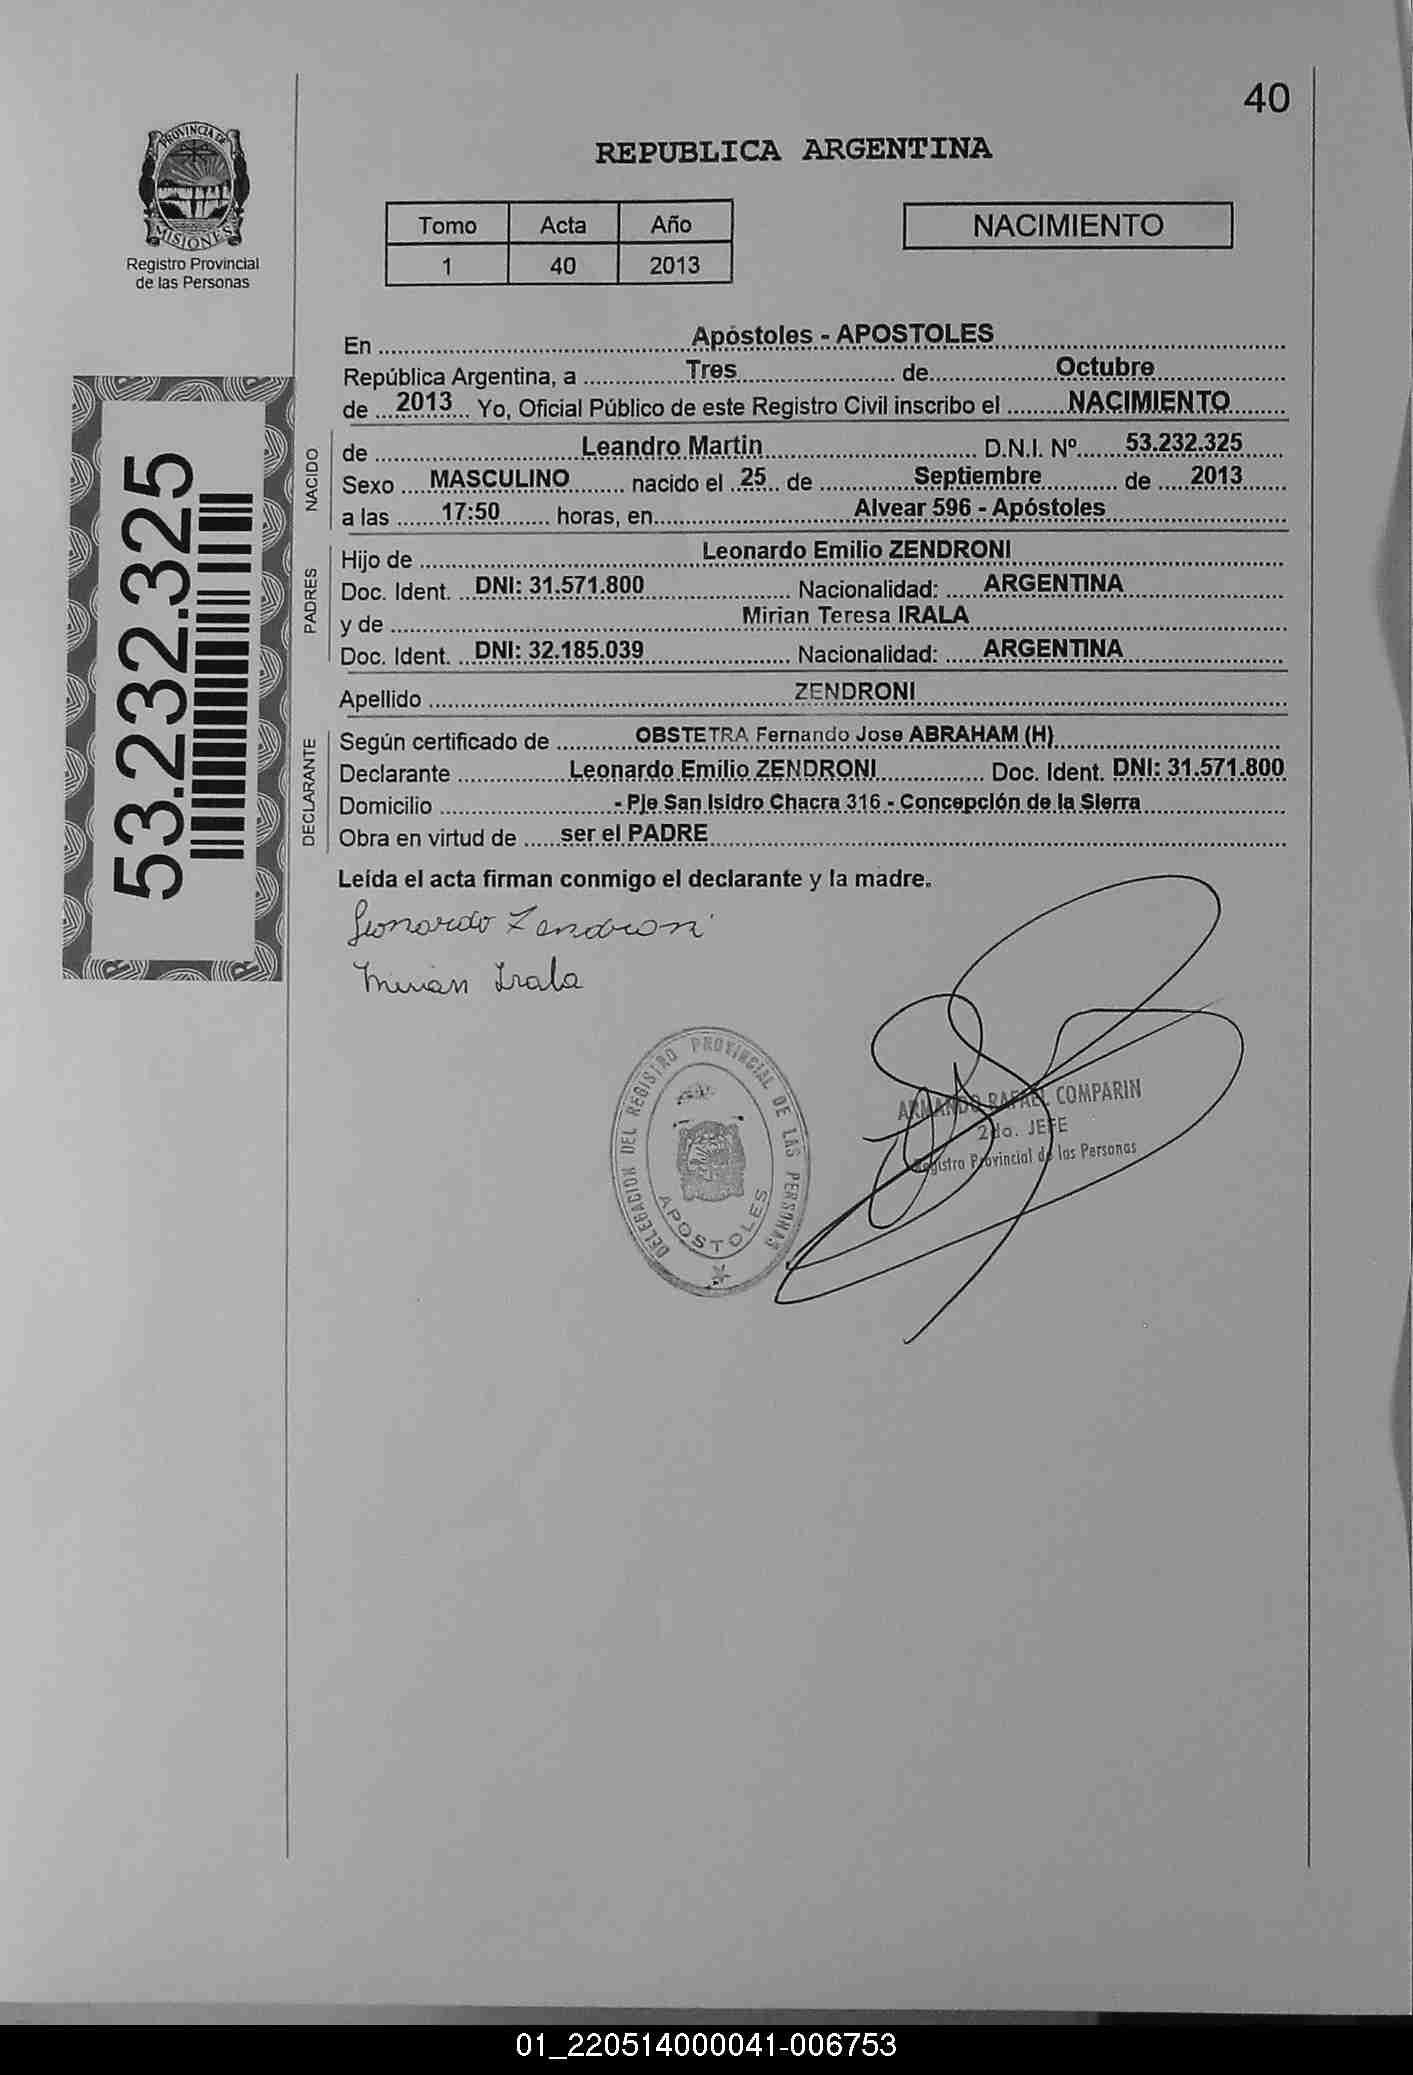 40
PROVINCIA DE
MISIONES
Registro Provincial
de las Personas
REPUBLICA ARGENTINA
Tomo Acta Año
1 40 2013
NACIMIENTO
53.232.325
En Apóstoles - APOSTOLES
República Argentina, a Tres de Octubre
de 2013 Yo, Oficial Público de este Registro Civil inscribo el NACIMIENTO
NACIDO
de Leandro Martin D.N.I. Nº 53.232.325
Sexo MASCULINO nacido el 25 de Septiembre de 2013
a las 17:50 horas, en Alvear 596 - Apóstoles
PADRES
Hijo de Leonardo Emilio ZENDRONI
Doc. Ident. DNI: 31.571.800 Nacionalidad: ARGENTINA
y de Mirian Teresa IRALA
Doc. Ident. DNI: 32.185.039 Nacionalidad: ARGENTINA
Apellido ZENDRONI
DECLARANTE
Según certificado de OBSTETRA Fernando Jose ABRAHAM (H)
Declarante Leonardo Emilio ZENDRONI Doc. Ident. DNI: 31.571.800
Domicilio - Pje San Isidro Chacra 316 - Concepción de la Sierra
Obra en virtud de ser el PADRE
Leída el acta firman conmigo el declarante y la madre.
Leonardo Zendroni
Mirian Irala
DELEGACION DEL REGISTRO PROVINCIAL DE LAS PERSONAS
APOSTOLES
ARMANDO RAFAEL COMPARIN
2do. JEFE
Registro Provincial de las Personas
01_220514000041-006753